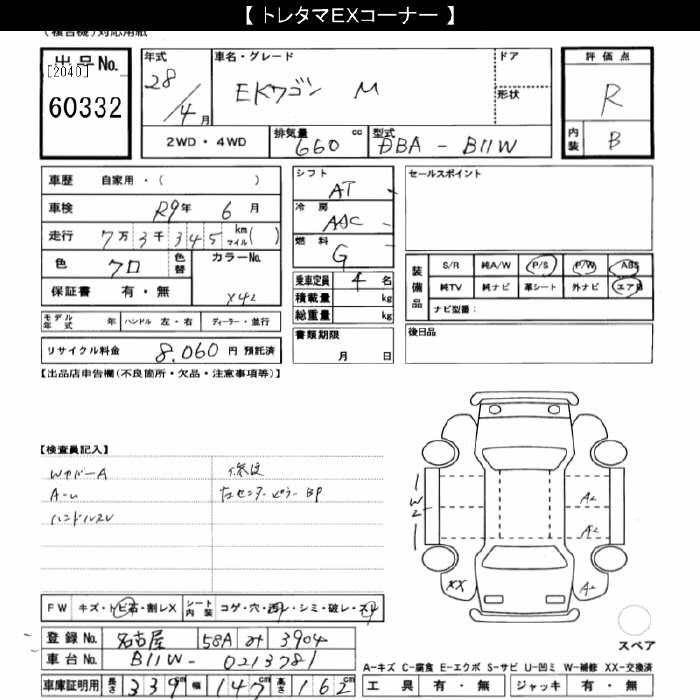 【 トレタマEXコーナー 】
出品No.
[2040]
60332
年式
28/4月
車名・グレード
EKワゴン M
ドア
形状
評価点
R
内装
B
2WD・4WD
排気量
660 cc
型式
DBA - B11W
車歴 自家用・( )
車検 R9年 6月
走行 7万3千345 km マイル( )
色 クロ
色替
カラーNo.
X42
保証書 有・無
シフト
AT
冷房
AAC
燃料
G
乗車定員 4名
積載量 kg
総重量 kg
セールスポイント
装備品
S/R 純A/W P/S P/W ABS
純TV 純ナビ 革シート 外ナビ エアB
ナビ型番:
モデル年式 年 ハンドル 左・右 ディーラー・並行
リサイクル料金 8,060 円 預託済
書類期限
月 日
後日品
【出品店申告欄(不良箇所・欠品・注意事項等)】
【検査員記入】
WカバーA
ハンドルスレ
修復
左センターピラーBP
W2
A2
A2
XX
A2
FW キズ・トビ石・割レX
シート内装 コゲ・穴・・シミ・破レ・スレ
登録No. 名古屋 58A 3904
車台No. B11W - 0213781
車庫証明用 長さ 339 幅 147 高さ 162
スペア
A-キズ C-腐食 E-エクボ S-サビ U-凹ミ W-補修 XX-交換済
工具 有・無 ジャッキ 有・無